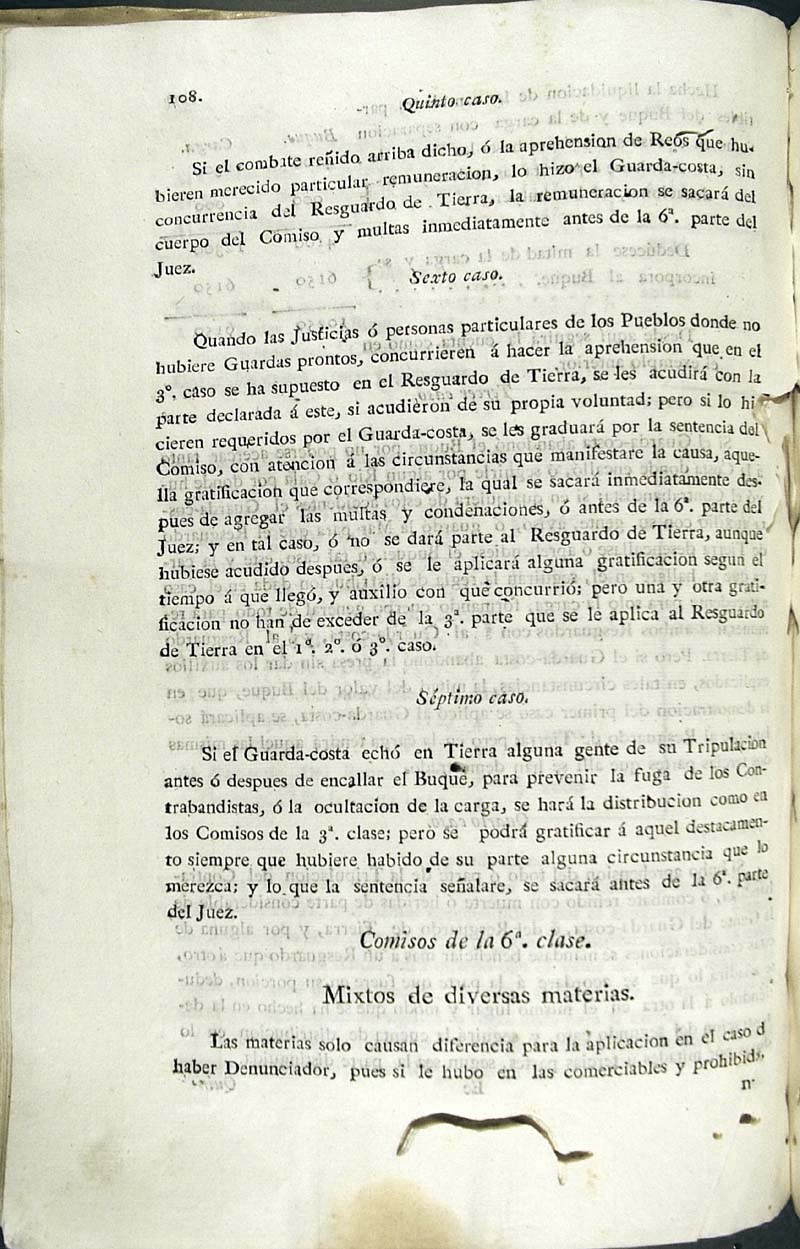 108.
Quinto caso.
Si el combate reñido arriba dicho, ó la aprehension de Reos que hu-
bieren merecido particular remuneracion, lo hizo el Guarda-costa, sin
concurrencia del Resguardo de Tierra, la remuneracion se sacará del
cuerpo del Comiso y multas inmediatamente antes de la 6ª. parte del
Juez.
Sexto caso.
Quando las Justicias ó personas particulares de los Pueblos donde no
hubiere Guardas prontos, concurrieren á hacer la aprehension que en el
3º. caso se ha supuesto en el Resguardo de Tierra, se les acudirá con la
parte declarada á este, si acudieron de su propia voluntad; pero si lo hi
cieren requeridos por el Guarda-costa, se les graduará por la sentencia del
Comiso, con atencion á las circunstancias que manifestare la causa, aque-
lla gratificacion que correspondiere, la qual se sacará inmediatamente des-
pues de agregar las multas y condenaciones, ó antes de la 6ª. parte del
Juez; y en tal caso, ó no se dará parte al Resguardo de Tierra, aunque
hubiese acudido despues, ó se le aplicará alguna gratificacion segun el
tiempo á que llegó, y auxîlio con que concurrió; pero una y otra grati-
ficacion no han de exceder de la 3ª. parte que se le aplica al Resguardo
de Tierra en el 1º. 2º. ó 3º. caso.
Séptimo caso.
Si el Guarda-costa echó en Tierra alguna gente de su Tripulacion
antes ó despues de encallar el Buque, para prevenir la fuga de los Con-
trabandistas, ó la ocultacion de la carga, se hará la distribucion como en
los Comisos de la 3ª. clase; pero se podrá gratificar á aquel destacamen-
to siempre que hubiere habido de su parte alguna circunstancia que lo
merezca; y lo que la sentencia señalare, se sacará antes de la 6ª. parte
del Juez.
Comisos de la 6ª. clase.
Mixtos de diversas materias.
Las materias solo causan diferencia para la aplicacion en el caso d
haber Denunciador, pues si le hubo en las comerciables y prohibid
n